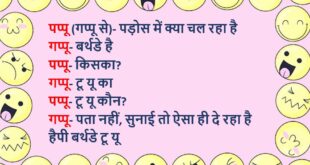 पप्पू (गप्पू से)- पड़ोस में क्या चल रहा है
गप्पू- बर्थडे है
पप्पू- किसका?
गप्पू- टू यू का
पप्पू- टू यू कौन?
गप्पू- पता नहीं, सुनाई तो ऐसा ही दे रहा है
हैपी बर्थडे टू यू